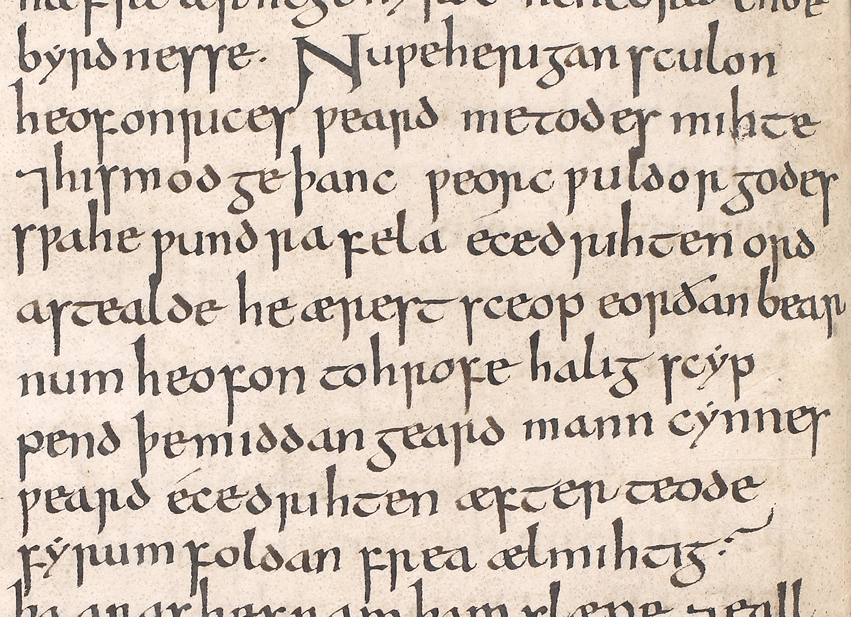 byrdnesse. Nu ƿe herigan sculon
heofonrices ƿeard metodes mihte
⁊ his mod geþanc ƿeorc ƿuldor godes
sƿa he ƿundra fela écedrihten ord
astealde he ærest sceop eorðan bear
num heofon to hrofe halig scyp
pend þe middangeard mann cynnes
ƿeard écedrihten æfter teode
fyrum foldan frea ælmihtig